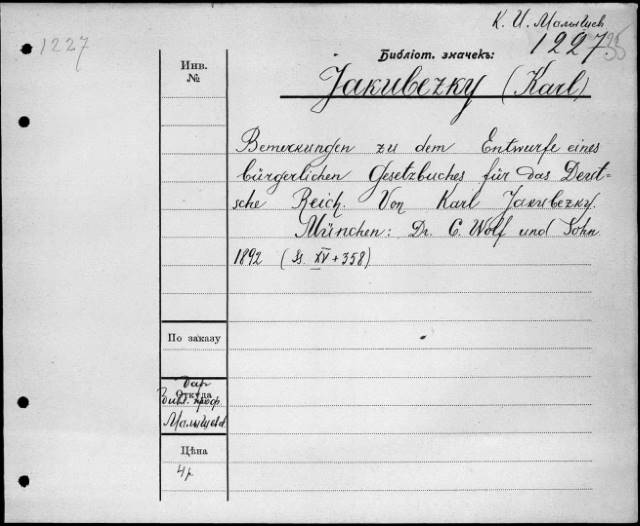 К. И. Малышев
1227
1227
Библіот. значекъ:
Инв.
№
Jakubezky (Karl)
Bemerkungen zu dem Entwurfe eines
bürgerlichen Gesetzbuches für das Deut-
sche Reich. Von Karl Jakubezky.
München: Dr. C. Wolf und Sohn.
1892 (Ss. XV + 358)
По заказу
Откуда
Дар
Библ. проф.
Малышева
Цѣна
4р